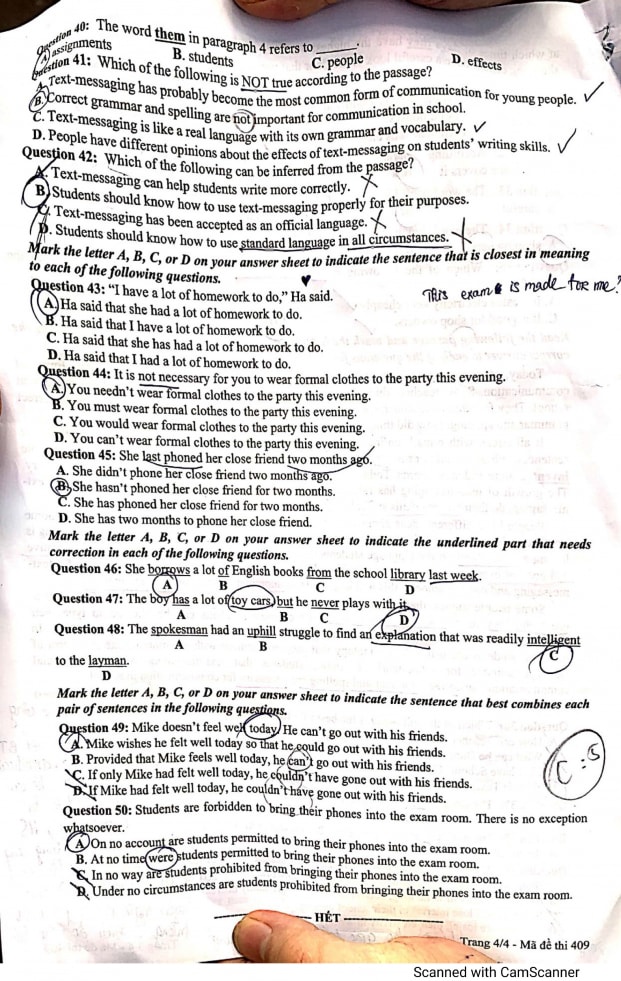 Question 40: The word them in paragraph 4 refers to ______.
A. assignments B. students C. people D. effects
Question 41: Which of the following is NOT true according to the passage?
A. Text-messaging has probably become the most common form of communication for young people.
B. Correct grammar and spelling are not important for communication in school.
C. Text-messaging is like a real language with its own grammar and vocabulary.
D. People have different opinions about the effects of text-messaging on students' writing skills.
Question 42: Which of the following can be inferred from the passage?
A. Text-messaging can help students write more correctly.
B. Students should know how to use text-messaging properly for their purposes.
C. Text-messaging has been accepted as an official language.
D. Students should know how to use standard language in all circumstances.
Mark the letter A, B, C, or D on your answer sheet to indicate the sentence that is closest in meaning
to each of the following questions.
This exam is made for me?
Question 43: "I have a lot of homework to do," Ha said.
A. Ha said that she had a lot of homework to do.
B. Ha said that I have a lot of homework to do.
C. Ha said that she has had a lot of homework to do.
D. Ha said that I had a lot of homework to do.
Question 44: It is not necessary for you to wear formal clothes to the party this evening.
A. You needn't wear formal clothes to the party this evening.
B. You must wear formal clothes to the party this evening.
C. You would wear formal clothes to the party this evening.
D. You can't wear formal clothes to the party this evening.
Question 45: She last phoned her close friend two months ago.
A. She didn't phone her close friend two months ago.
B. She hasn't phoned her close friend for two months.
C. She has phoned her close friend for two months.
D. She has two months to phone her close friend.
Mark the letter A, B, C, or D on your answer sheet to indicate the underlined part that needs
correction in each of the following questions.
Question 46: She borrows a lot of English books from the school library last week.
A B C D
Question 47: The boy has a lot of toy cars, but he never plays with it.
A B C D
Question 48: The spokesman had an uphill struggle to find an explanation that was readily intelligent
A B C
to the layman.
D
Mark the letter A, B, C, or D on your answer sheet to indicate the sentence that best combines each
pair of sentences in the following questions.
Question 49: Mike doesn't feel well today. He can't go out with his friends.
A. Mike wishes he felt well today so that he could go out with his friends.
B. Provided that Mike feels well today, he can't go out with his friends.
C. If only Mike had felt well today, he couldn't have gone out with his friends.
D. If Mike had felt well today, he couldn't have gone out with his friends.
C:5
Question 50: Students are forbidden to bring their phones into the exam room. There is no exception
whatsoever.
A. On no account are students permitted to bring their phones into the exam room.
B. At no time were students permitted to bring their phones into the exam room.
C. In no way are students prohibited from bringing their phones into the exam room.
D. Under no circumstances are students prohibited from bringing their phones into the exam room.
HẾT
Trang 4/4 - Mã đề thi 409
Scanned with CamScanner